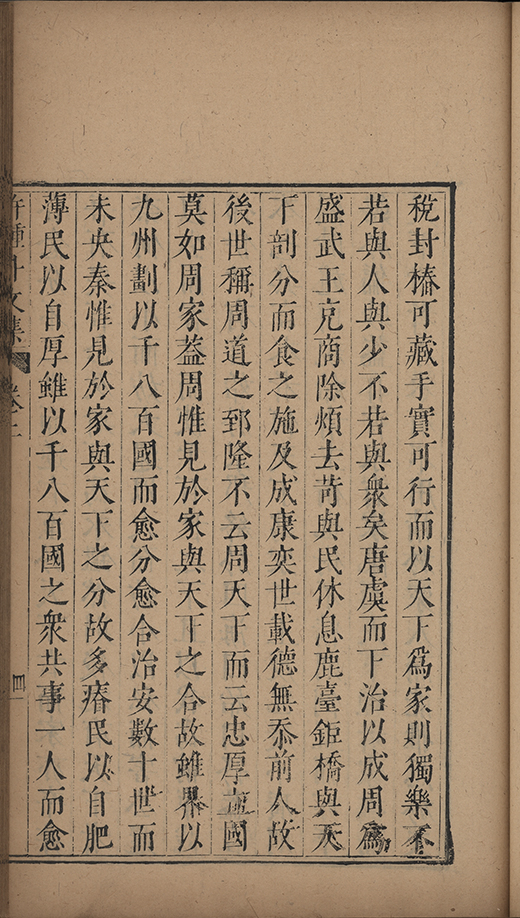 稅封樁可藏手實可行而以天下爲家則獨樂不
若與人與少不若與衆矣唐虞而下治以成周爲
盛武王克商除煩去苛與民休息鹿臺鉅橋與天
下剖分而食之施及成康奕世載德無忝前人故
後世稱周道之郅隆不云周天下而云忠厚立國
莫如周家葢周惟見於家與天下之合故雖㮣以
九州劃以千八百國而愈分愈合治安數十世而
未央秦惟見於家與天下之分故多瘠民以自肥
薄民以自厚雖以千八百國之衆共事一人而愈
許鍾斗文集 卷二 四